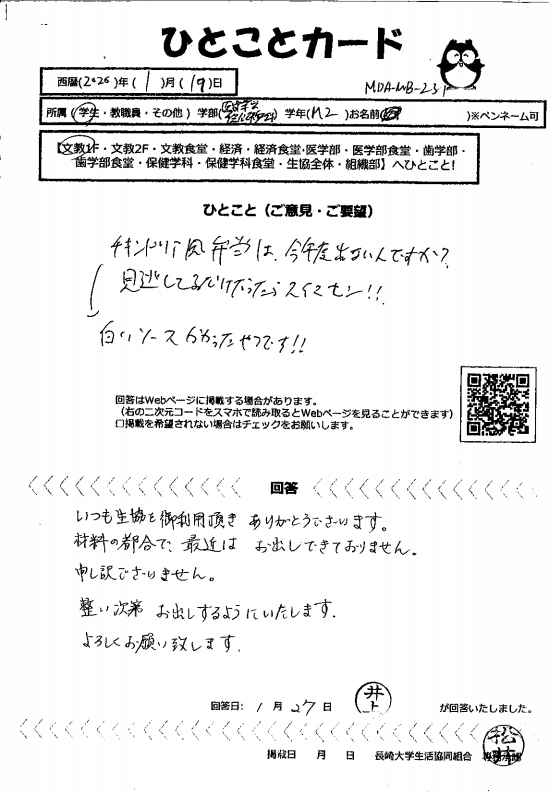 ひとことカード
西暦(2026)年( 1 )月( 19 )日
MDA-WB-231
所属( 学生・教職員・その他 ) 学部( ) 学年( M2 )お名前( )※ペンネーム可
【文教1F・文教2F・文教食堂・経済・経済食堂・医学部・医学部食堂・歯学部・
歯学部食堂・保健学科・保健学科食堂・生協全体・組織部】へひとこと!
ひとこと(ご意見・ご要望)
チキンドリア風弁当は、今年度出ないんですか?
見逃してるだけだったらスイマセン!!
白いソースかかったやつです!!
回答はWebページに掲載する場合があります。
(右の二次元コードをスマホで読み取るとWebページを見ることができます)
□掲載を希望されない場合はチェックをお願いします。
回答
いつも生協を御利用頂き ありがとうございます。
材料の都合で、最近は お出しできておりません。
申し訳ございません。
整い次第 お出しするようにいたします。
よろしくお願い致します。
回答日: 1 月 27 日 井上 が回答いたしました。
掲載日 月 日 長崎大学生活協同組合